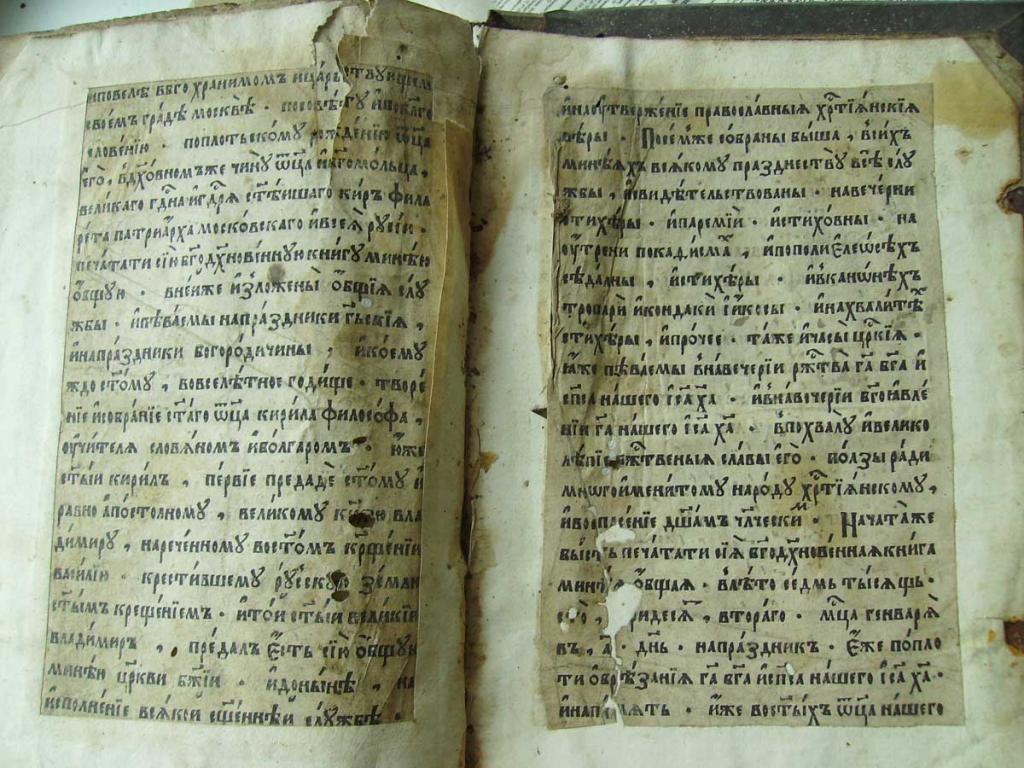 иповелѣ въго хранимомъ ицарьствующемъ
своемъ гра́дѣ москвѣ · посовѣту
словенїю · поплотьскому рожденїю ѻ҆ц҃а
є҆го̀, вд҃хо́вномъже чину ѻ҆ц҃а ибг҃омо́льца,
вели́каго гд҃на игдⷭ҇ря ст҃ѣ́ишаго ки́ръ фила
ре́та патриа́рха моско́вскаго ивсеѧ̀ рꙋсі́и ·
печа́тати сїю̀ бг҃одх҃нове́ннꙋю кни́гꙋ мине́ю
ѻ҆́бщꙋю · вне́йже и҆зложе́ны ѻ҆́бщїѧ слꙋ́
жбы · и҆пѣва́емы напра́здники гдⷭ҇ьскїѧ,
и҆напра́здники богоро́дичины, и҆ко́емꙋ
ждо ст҃о́мꙋ, вовселѣ́тное годи́ще · творе́
нїе и҆собра́нїе ст҃а́го ѻ҆ц҃а кири́ла фило́софа,
оу҆чи́телѧ словя́номъ и҆волга́ромъ · ю҆́же
ст҃ы́и кири́лъ, пе́рвїе предадѐ ст҃о́мꙋ и҆
равно а҆по́столномꙋ, вели́комꙋ кнѧ́зю вла
ди́мирꙋ, нарече́нномꙋ восто́мъ кр҃ще́нїи
васи́лїю · крести́вшемꙋ рꙋ́сскꙋю зе́млю
ст҃ы́мъ креще́нїемъ · и҆то́й ст҃ы́и вели́кїи
влади́миръ, преда́лъ є҆́сть сїю̀ ѻ҆́бщꙋю
мине́ю цр҃кви бж҃їи · и҆доны́нѣ, на
и҆сполне́нїе вся́кой сщ҃е́ннѣй слꙋ́жбѣ ·
и҆наоу҆тверже́нїе правосла́вныѧ хрⷭ҇тїѧ́нскїѧ
вѣ́ры · Посе́мже со́браны бы́ша, вси́хъ
мине́ѧхъ всѧ́комꙋ пра́зднествꙋ всѣ̀ слꙋ́
жбы, и҆свидѣ́тельствованы · навече́рни
стихѣ́ры · и҆паремїи̑ · и҆стихо́вны · на
оу҆́трени покаѳи́смаⷯ, и҆пополиєле́ѡсѣхъ
сѣда́лны, и҆стихѣ́ры · и҆вкано́нѣхъ
тропари̑ и҆кондаки̑ и҆и҆́косы · и҆нахвали́теⷯ
стихѣ́ры, и҆про́чее · та́же и҆часы̀ цр҃кїѧ ·
ꙗ҆̀же пѣва́емы внавече́рїи ржⷭ҇тва̀ га҃ бг҃а и҆
сп҃са на́шего і҆са ха҃ · и҆внавече́рїи бг҃оꙗвле́
нїи га҃ на́шего і҆са ха҃ · впохва́лꙋ и҆велико
лѣ́пїе бж҃тве́ныѧ сла́вы є҆го̀ · по́лзы ра́ди
мно́гоимени́томꙋ наро́дꙋ хрⷭ҇тїѧ́нскомꙋ,
и҆воспⷭ҇се́нїе дш҃а́мъ чл҃ческиⷨ · Нача́таже
бы́сть печа́тати сїѧ̀ бг҃одх҃нове́ннаѧ кни́га
мине́ѧ ѻ҆́бщаѧ · влѣ́то се́дмь ты́сѧщь ·
втора́го · мцⷭ҇а генварѧ̀
въ, а҃ · дн҃ь · напра́здникъ · є҆́же попло
ти ѻ҆брѣ́занїѧ га҃ бг҃а и҆сп҃са на́шего і҆са ха҃ ·
и҆напа́мѧть · и҆́же восты́хъ ѻ҆ц҃а на́шего